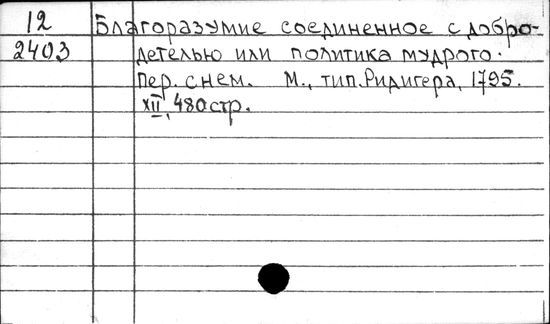 12 Благоразумие соединенное с добро-
2403 детелью или политика мудрого.
Пер. с нем. М., тип. Ридигера, 1795.
XII, 480 стр.